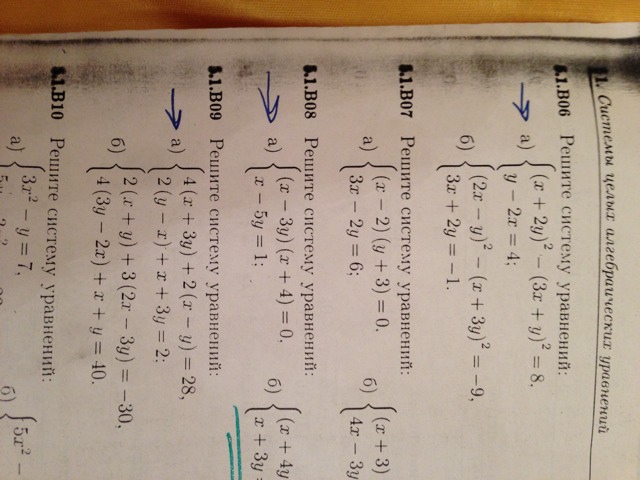 1. Системы целых алгебраических уравнений
1.B06 Решите систему уравнений:
а) { (x + 2y)² − (3x + y)² = 8,
y − 2x = 4;
б) { (2x − y)² − (x + 3y)² = −9,
3x + 2y = −1.
1.B07 Решите систему уравнений:
а) { (x − 2)(y + 3) = 0,
3x − 2y = 6;
б) { (x + 3)
4x − 3y
1.B08 Решите систему уравнений:
а) { (x − 3y)(x + 4) = 0,
x − 5y = 1;
б) { (x + 4y
x + 3y =
1.B09 Решите систему уравнений:
а) { 4(x + 3y) + 2(x − y) = 28,
2(y − x) + x + 3y = 2;
б) { 2(x + y) + 3(2x − 3y) = −30,
4(3y − 2x) + x + y = 40.
1.B10 Решите систему уравнений:
а) { 3x² − y = 7,
б) { 5x² −